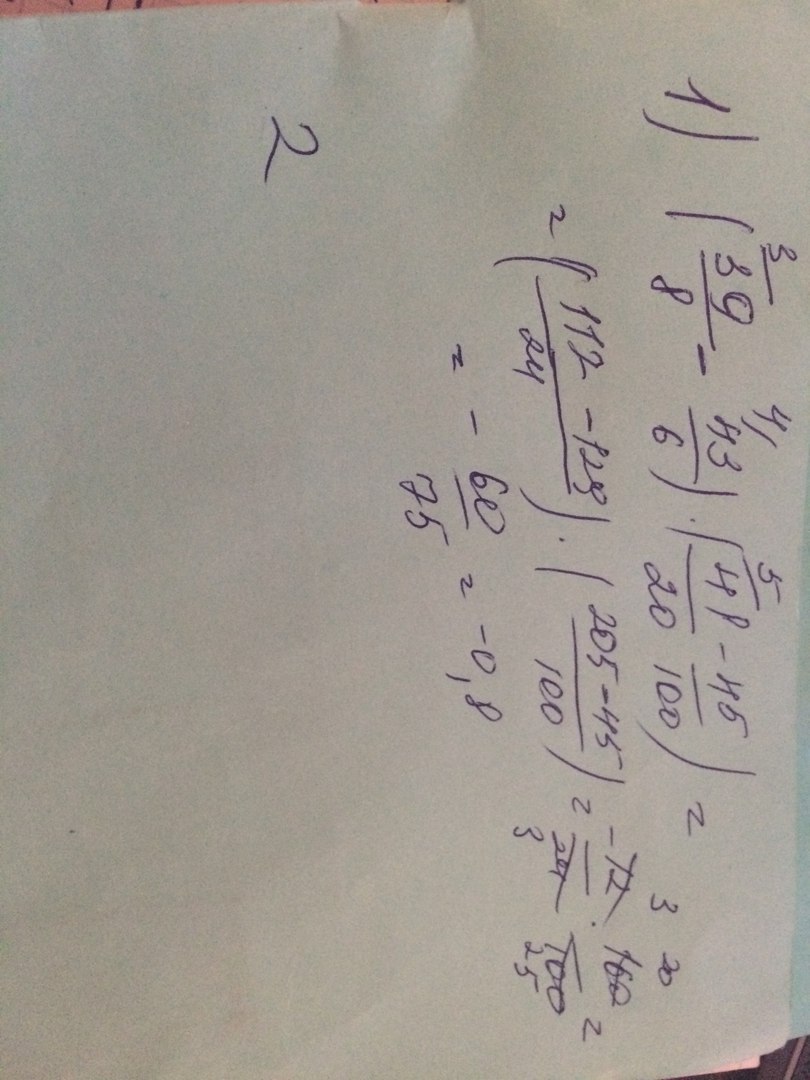 1) (³39/8 - ⁴43/6) · (⁵41/20 - 45/100) =
= (117 - 129/24) · (205 - 45/100) = -12/24 · 160/100 =
= - 60/75 = -0,8
2